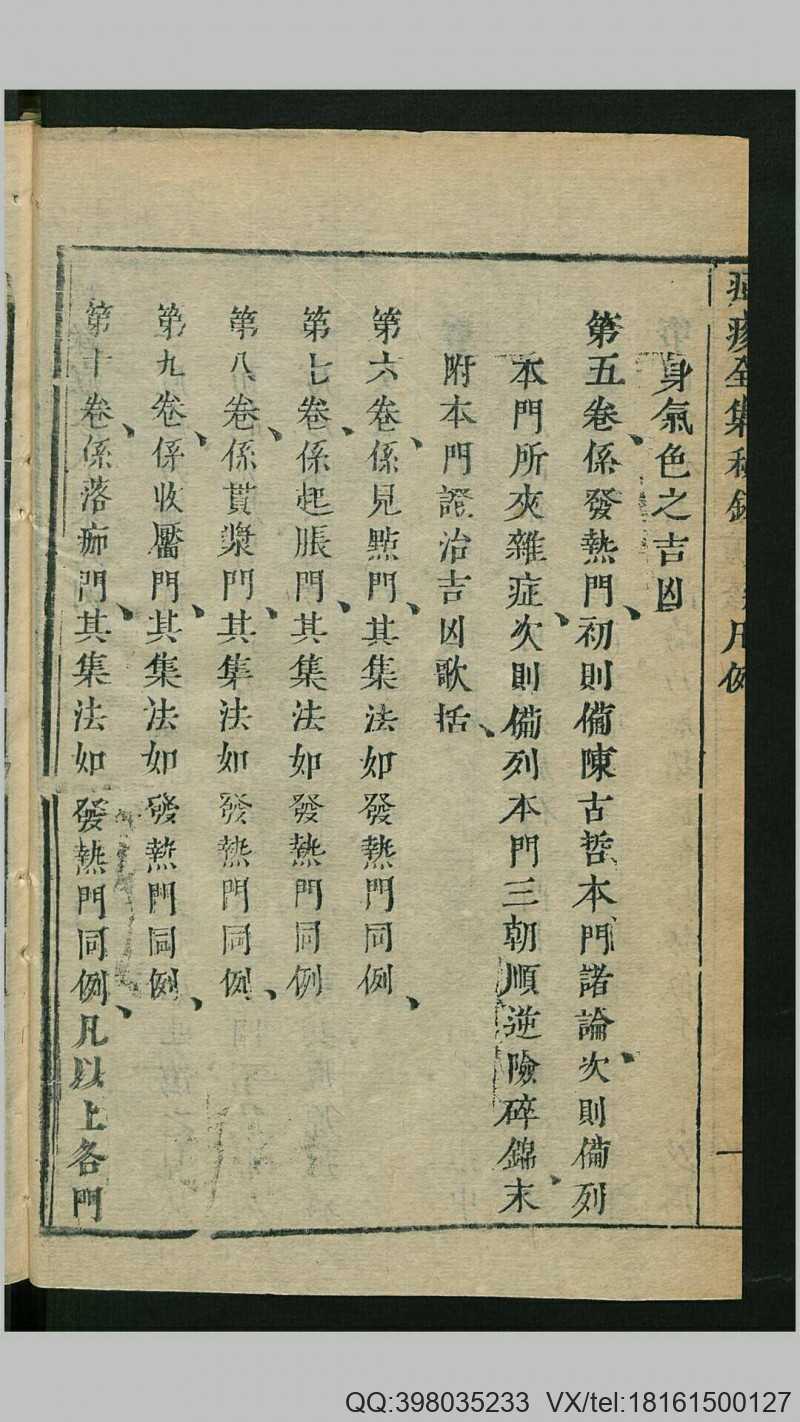 疹全集秘錄 凡例
一
身氣色之吉凶
第五卷、係發熱門、初則備陳古哲本門諸論、次則備列
本門所夾雜症、次則備列本門三朝順逆險碎錦、末
附本門證治吉凶歌括、
第六卷、係見點門、其集法如發熱門同例、
第七卷、係起脹門、其集法如發熱門同例
第八卷、係貫漿門、其集法如發熱門同例、
第九卷、係收靨門、其集法如發熱門同例、
第十卷、係落痂門、其集法如發熱門同例、凡以上各門
QQ:398035233 VX/tel:18161500127